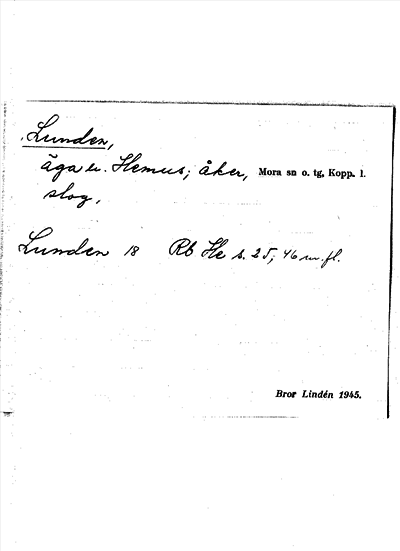 Lunden,
äga ev. Hemus; åker, Mora sn o. tg, Kopp. l.
slog,
Lunden 18 Rb He s. 25; 46 m. fl.
Bror Lindén 1945.